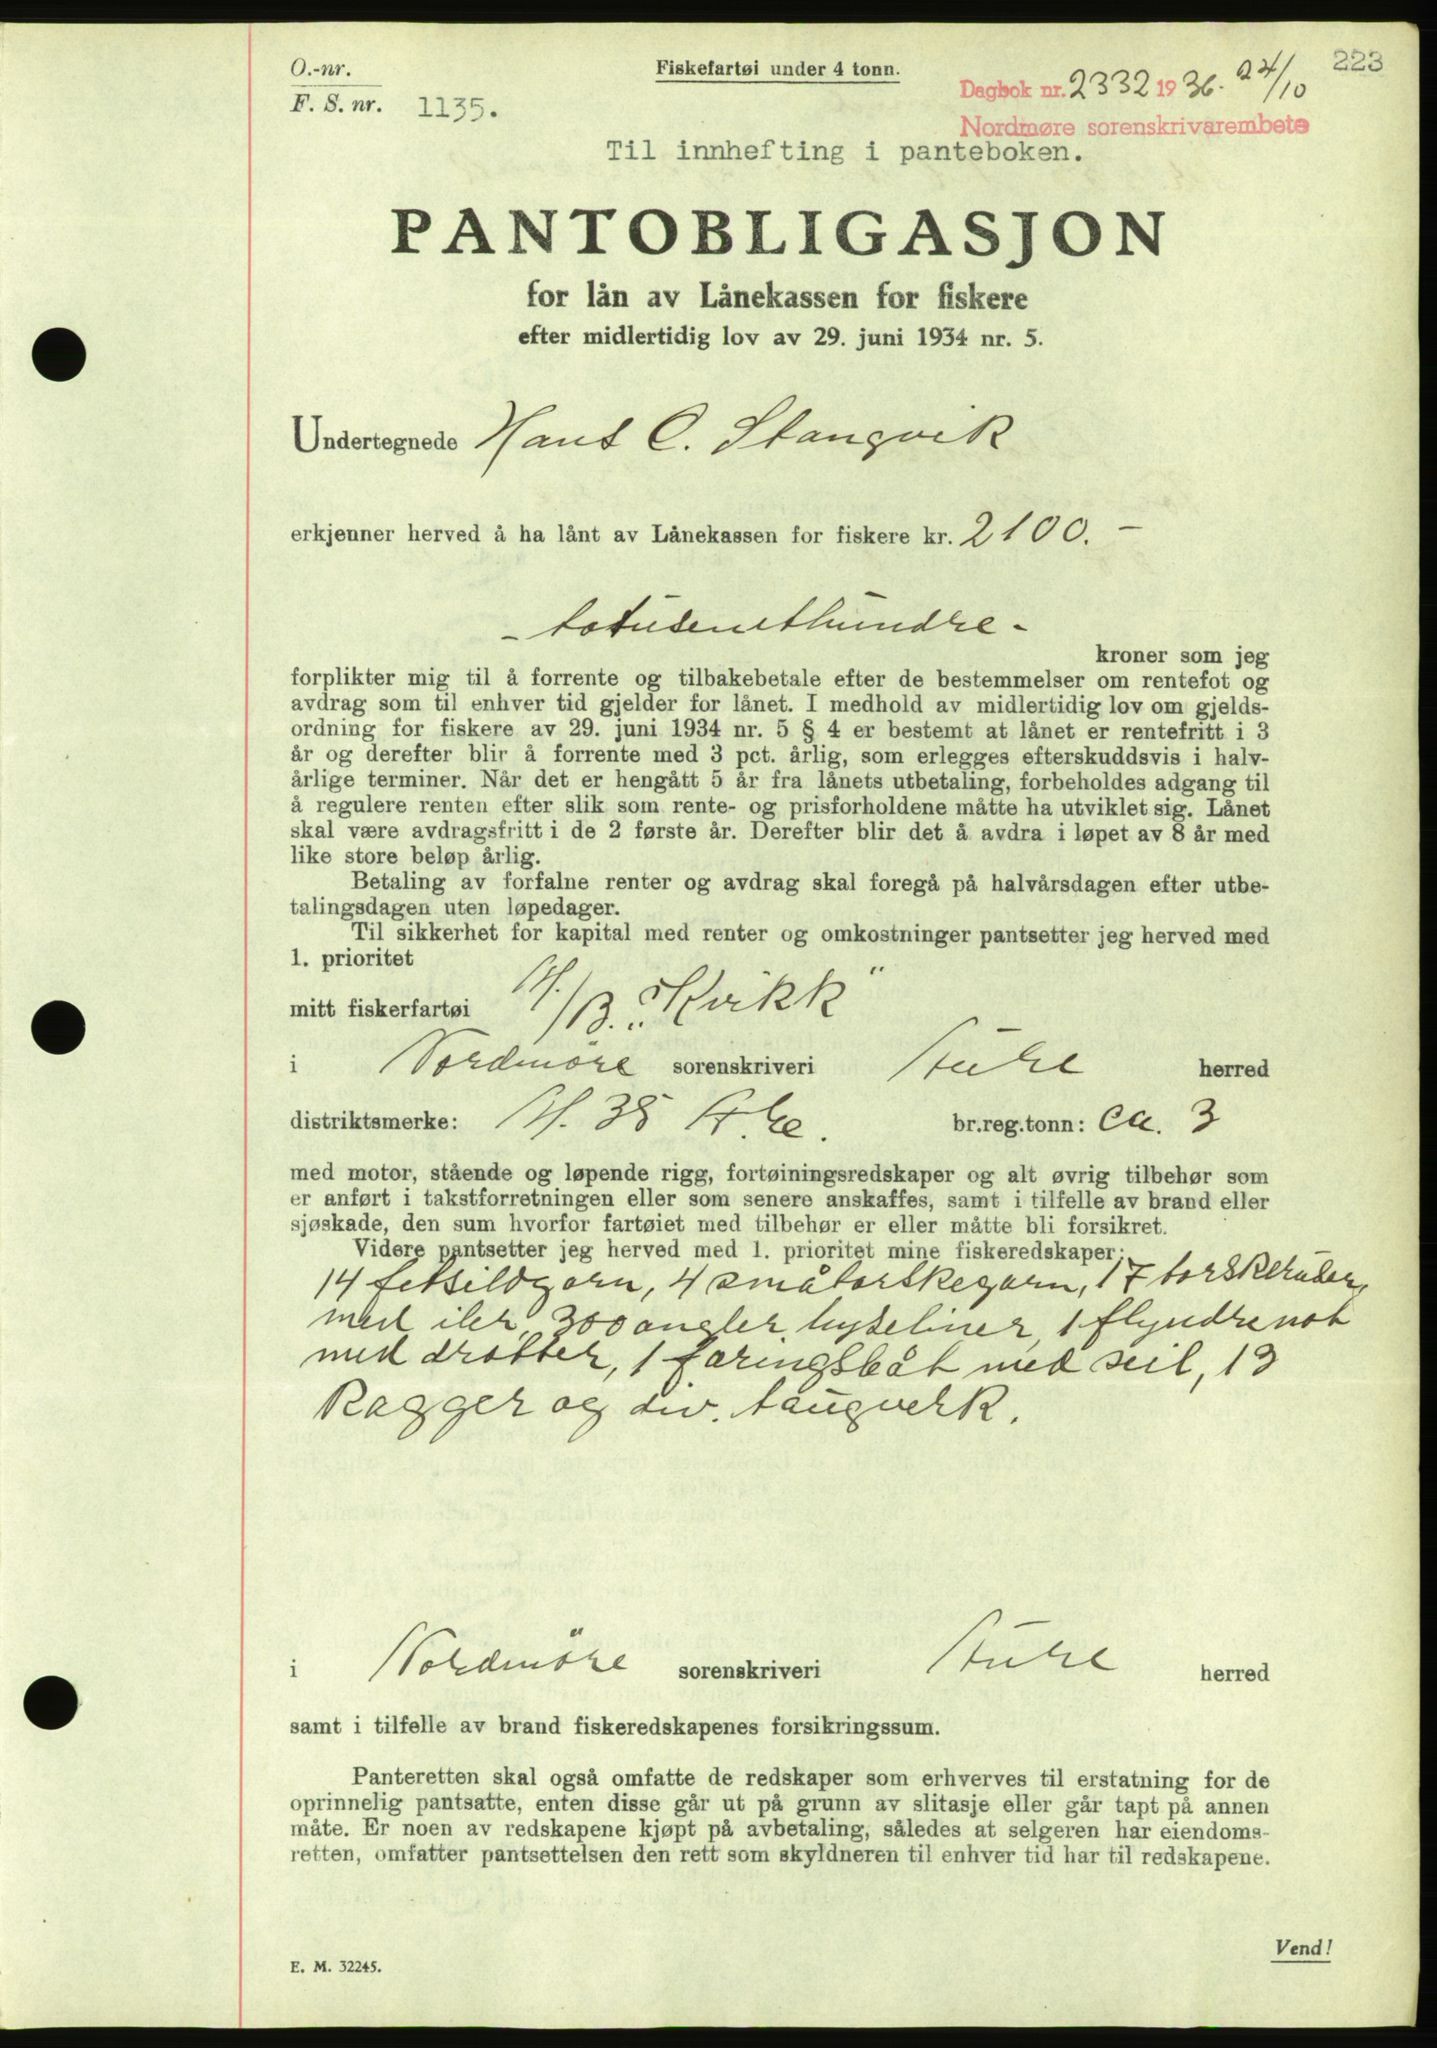 223
O.-nr.
Fiskefartøi under 4 tonn.
Dagbok nr. 2332 1936. 24/10
F. S. nr. 1135.
Nordmøre sorenskrivarembete
Til innhefting i panteboken.
PANTOBLIGASJON
for lån av Lånekassen for fiskere
efter midlertidig lov av 29. juni 1934 nr. 5.
Undertegnede Hans C. Stangvik
erkjenner herved å ha lånt av Lånekassen for fiskere kr. 2100.-
- totusenethundre -
kroner som jeg
forplikter mig til å forrente og tilbakebetale efter de bestemmelser om rentefot og
avdrag som til enhver tid gjelder for lånet. I medhold av midlertidig lov om gjelds-
ordning for fiskere av 29. juni 1934 nr. 5 § 4 er bestemt at lånet er rentefritt i 3
år og derefter blir å forrente med 3 pct. årlig, som erlegges efterskuddsvis i halv-
årlige terminer. Når det er hengått 5 år fra lånets utbetaling, forbeholdes adgang til
å regulere renten efter slik som rente- og prisforholdene måtte ha utviklet sig. Lånet
skal være avdragsfritt i de 2 første år. Derefter blir det å avdra i løpet av 8 år med
like store beløp årlig.
Betaling av forfalne renter og avdrag skal foregå på halvårsdagen efter utbe-
talingsdagen uten løpedager.
Til sikkerhet for kapital med renter og omkostninger pantsetter jeg herved med
1. prioritet
mitt fiskerfartøi M/B. "Kvikk"
i Nordmöre sorenskriveri Aure herred
distriktsmerke: M. 35 A.re. br.reg.tonn: ca. 3
med motor, stående og løpende rigg, fortøiningsredskaper og alt øvrig tilbehør som
er anført i takstforretningen eller som senere anskaffes, samt i tilfelle av brand eller
sjøskade, den sum hvorfor fartøiet med tilbehør er eller måtte bli forsikret.
Videre pantsetter jeg herved med 1. prioritet mine fiskeredskaper:
14 fetsildgarn, 4 småtorskegarn, 17 torskeruser,
med iler, 300 angler hyseliner, 1 flyndrenot
med drotter, 1 færingsbåt med seil, 13
Kagger og div. taugverk.
i Nordmöre sorenskriveri Aure herred
samt i tilfelle av brand fiskeredskapenes forsikringssum.
Panteretten skal også omfatte de redskaper som erhverves til erstatning for de
oprinnelig pantsatte, enten disse går ut på grunn av slitasje eller går tapt på annen
måte. Er noen av redskapene kjøpt på avbetaling, således at selgeren har eiendoms-
retten, omfatter pantsettelsen den rett som skyldneren til enhver tid har til redskapene.
Vend!
E. M. 32245.